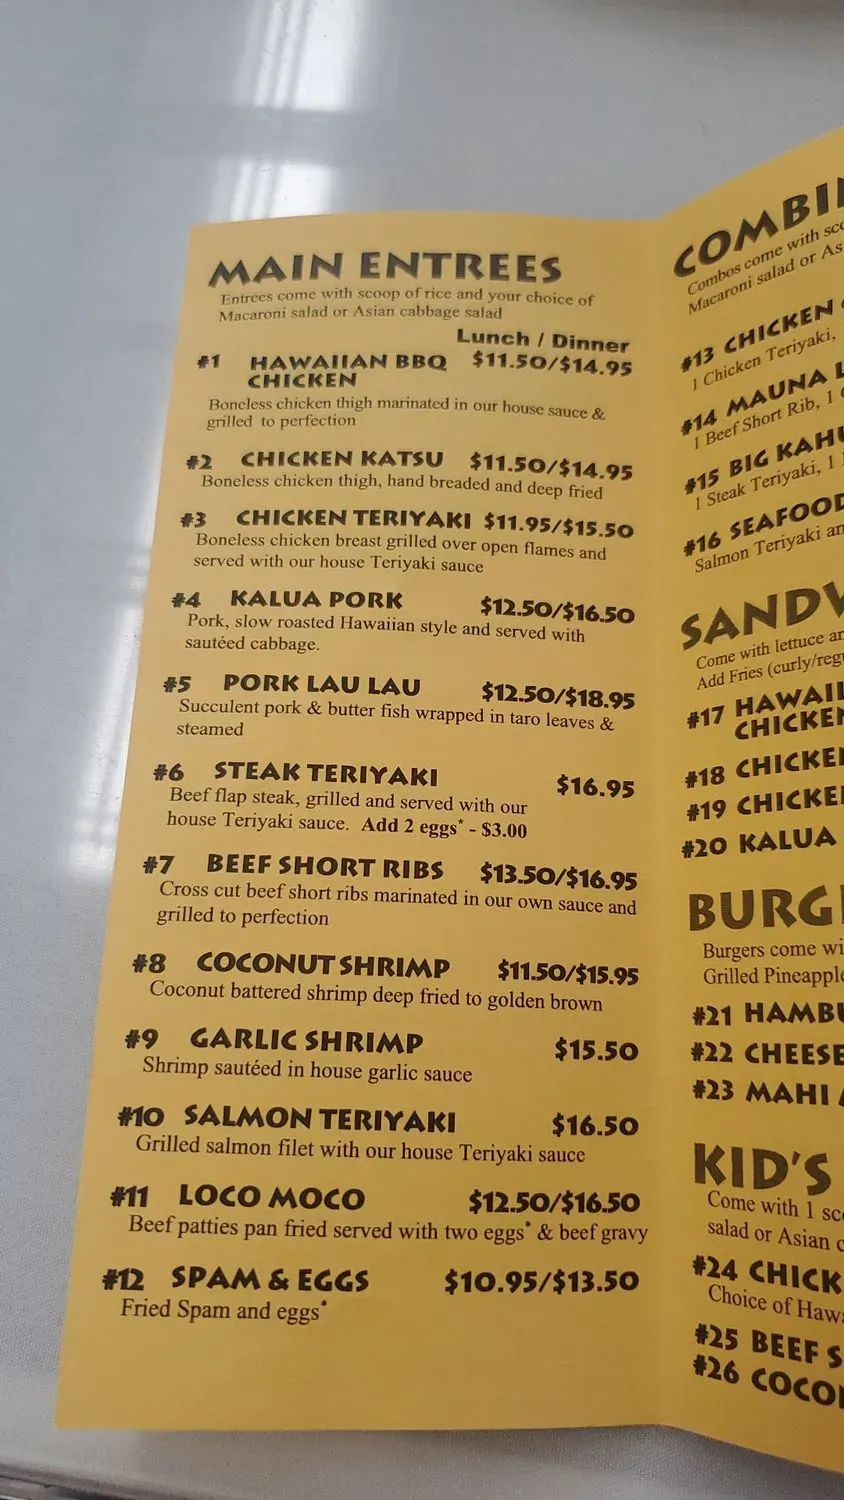 MAIN ENTREES
Entrees come with scoop of rice and your choice of
Macaroni salad or Asian cabbage salad
Lunch / Dinner
#1 HAWAIIAN BBQ $11.50/$14.95
CHICKEN
Boneless chicken thigh marinated in our house sauce &
grilled to perfection
#2 CHICKEN KATSU $11.50/$14.95
Boneless chicken thigh, hand breaded and deep fried
#3 CHICKEN TERIYAKI $11.95/$15.50
Boneless chicken breast grilled over open flames and
served with our house Teriyaki sauce
#4 KALUA PORK $12.50/$16.50
Pork, slow roasted Hawaiian style and served with
sautéed cabbage.
#5 PORK LAU LAU $12.50/$18.95
Succulent pork & butter fish wrapped in taro leaves &
steamed
#6 STEAK TERIYAKI $16.95
Beef flap steak, grilled and served with our
house Teriyaki sauce. Add 2 eggs* - $3.00
#7 BEEF SHORT RIBS $13.50/$16.95
Cross cut beef short ribs marinated in our own sauce and
grilled to perfection
#8 COCONUT SHRIMP $11.50/$15.95
Coconut battered shrimp deep fried to golden brown
#9 GARLIC SHRIMP $15.50
Shrimp sautéed in house garlic sauce
#10 SALMON TERIYAKI $16.50
Grilled salmon filet with our house Teriyaki sauce
#11 LOCO MOCO $12.50/$16.50
Beef patties pan fried served with two eggs* & beef gravy
#12 SPAM & EGGS $10.95/$13.50
Fried Spam and eggs*
COMBI
Combos come with sco
Macaroni salad or As
#13 CHICKEN
1 Chicken Teriyaki,
#14 MAUNA L
1 Beef Short Rib, 1
#15 BIG KAHU
1 Steak Teriyaki, 1
#16 SEAFOOD
Salmon Teriyaki an
SANDW
Come with lettuce an
Add Fries (curly/regu
#17 HAWAII
CHICKEN
#18 CHICKE
#19 CHICKE
#20 KALUA
BURG
Burgers come wi
Grilled Pineapple
#21 HAMBU
#22 CHEESE
#23 MAHI
KID'S
Come with 1 sco
salad or Asian c
#24 CHICK
Choice of Hawa
#25 BEEF S
#26 COCO